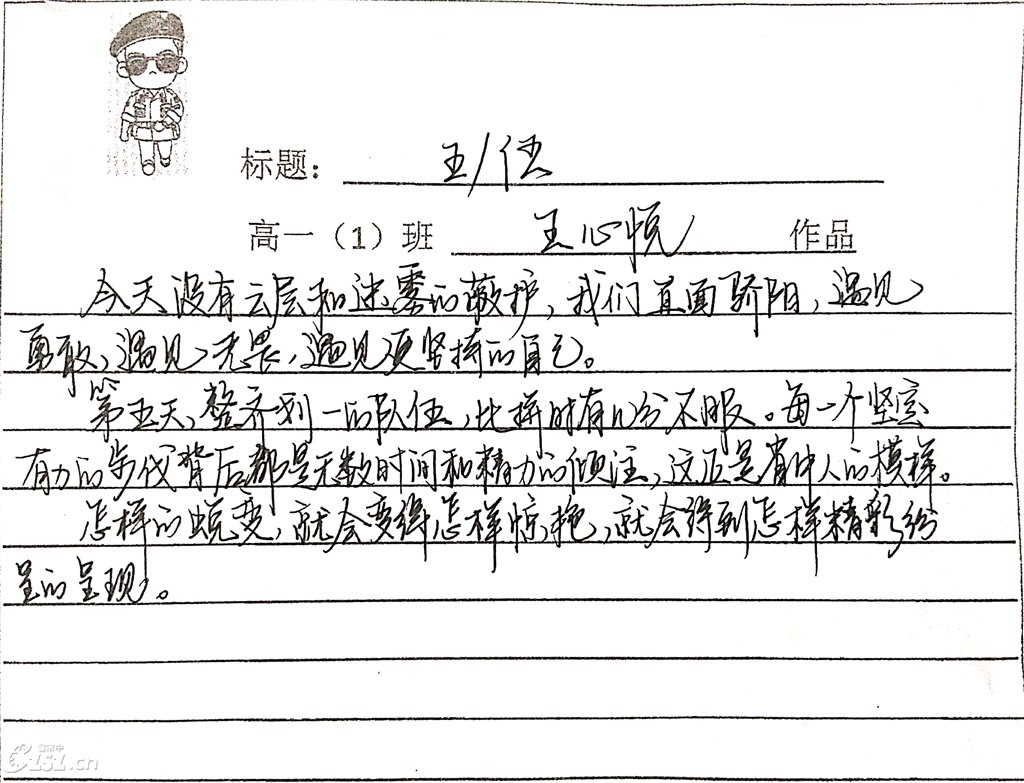 标题: 五/伍
高一（1）班 王心悦 作品
今天没有云层和迷雾的蔽护，我们直面骄阳，遇见
勇敢，遇见无畏，遇见更坚持的自己。
第五天，整齐划一的队伍，比拼时有几分不服。每一个坚实
有力的步伐背后都是无数时间和精力的倾注，这正是省中人的模样。
怎样的蜕变，就会变得怎样惊艳，就会得到怎样精彩纷
呈的呈现。
151.cn